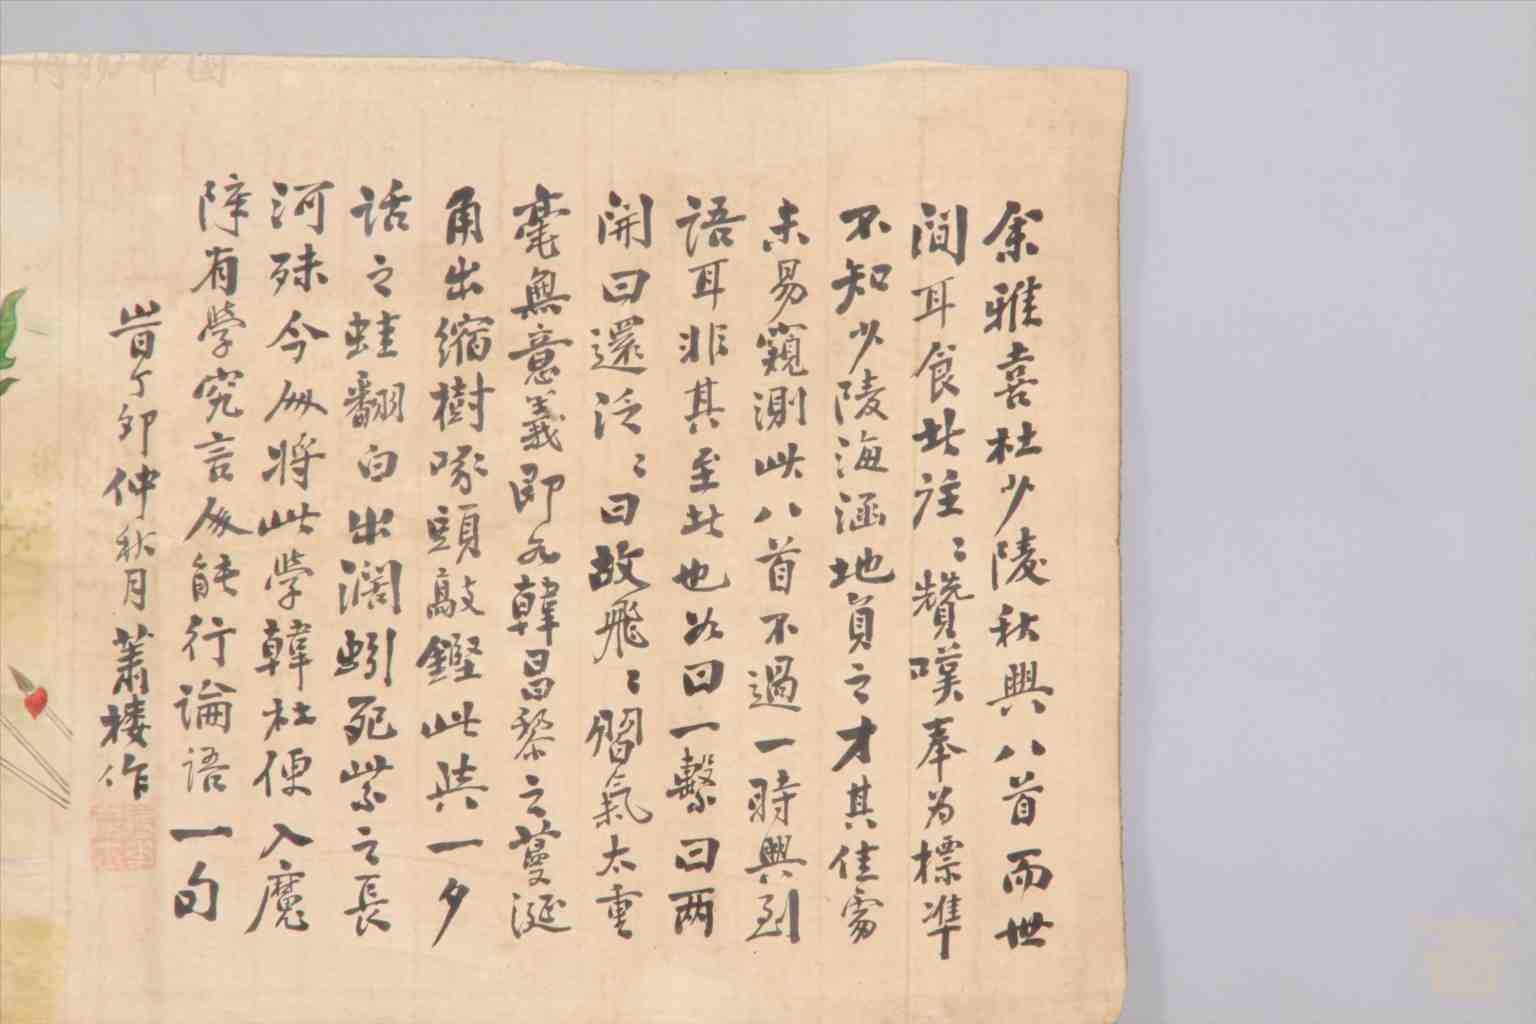 余雅喜杜少陵秋興八首而世
间耳食此注〻贊嘆奉为標準
不知少陵海涵地負之才其佳處
未易窺測此八首不過一時興到
語耳非其至者也如曰一繫曰两
開曰還泛〻曰故飛〻習氣太重
毫無意義即如韓昌黎之蔓涎
角出缩樹啄頭敲鏗此與一夕
話之蛙翻白出濶蚓死紫之長
河殊今人将此學韓杜便入魔
障有學究言人能行論語一句
時丁卯仲秋月蕭棲作